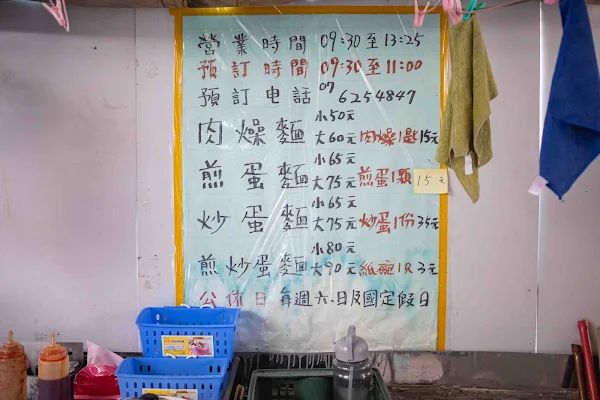 營業時間 09:30至13:25
預訂時間 09:30至11:00
預訂电話 07 6254847
肉燥麵 小50元 大60元 肉燥1匙15元
煎蛋麵 小65元 大75元 煎蛋1顆15元
炒蛋麵 小65元 大75元 炒蛋1份35元
煎炒蛋麵 小80元 大90元 紙碗1只3元
公休日 每週六.日及國定假日